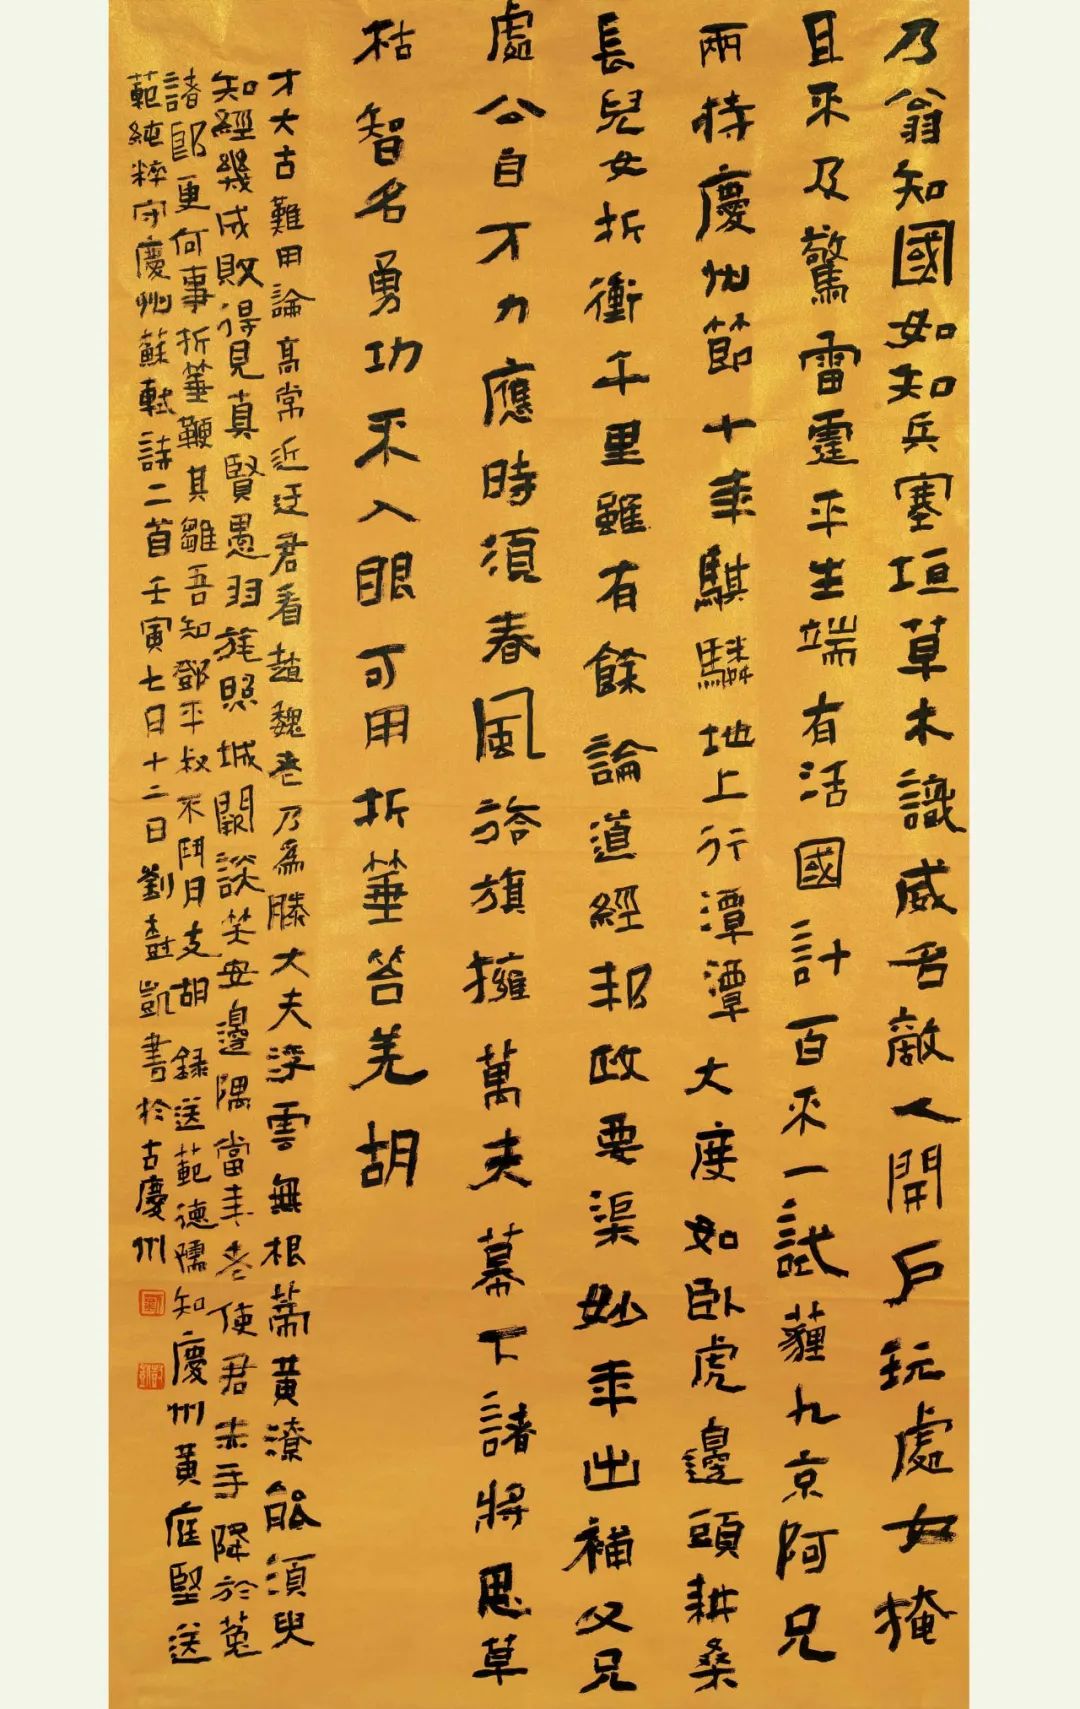 乃翁知國如知兵塞垣草木識威名敵人開戶玩處女掩
耳不及驚雷霆平生端有活國計百不一試薶九京阿兄
兩持慶州節十年騏驎地上行潭潭大度如臥虎邊頭耕桑
長兒女折衝千里雖有餘論道經邦政要渠妙年出補父兄
處公自才力應時須春風旍旗擁萬夫幕下諸將思草
枯智名勇功不入眼可用折箠笞羌胡
才大古難用論高常近迂君看趙魏老乃為滕大夫浮雲無根蔕黃潦能須臾
知經幾成敗得見真賢愚羽旄照城闕談笑安邊隅當年老使君赤手降於菟
諸郎更何事折箠鞭其雛吾知鄧平叔不鬥月支胡 錄送范德孺知慶州黃庭堅送
范純粹守慶州蘇軾詩二首壬寅七月十二日劉凱書於古慶州